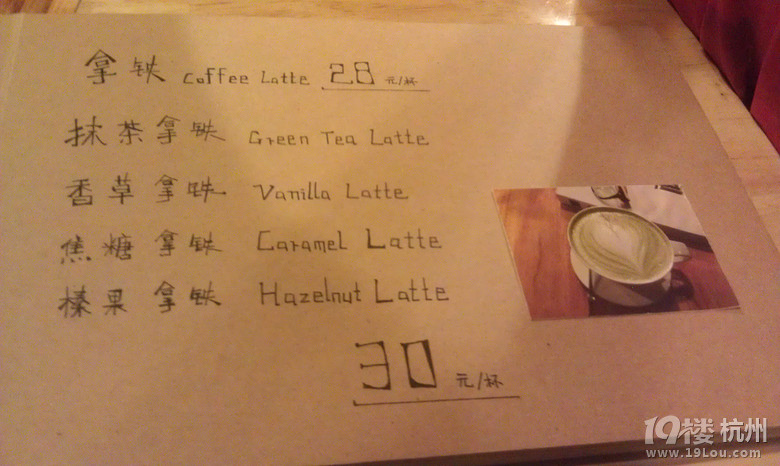 拿铁 Coffee Latte 28 元/杯
抹茶拿铁 Green Tea Latte
香草拿铁 Vanilla Latte
焦糖拿铁 Caramel Latte
榛果拿铁 Hazelnut Latte
30 元/杯
19楼 杭州
www.19Lou.com